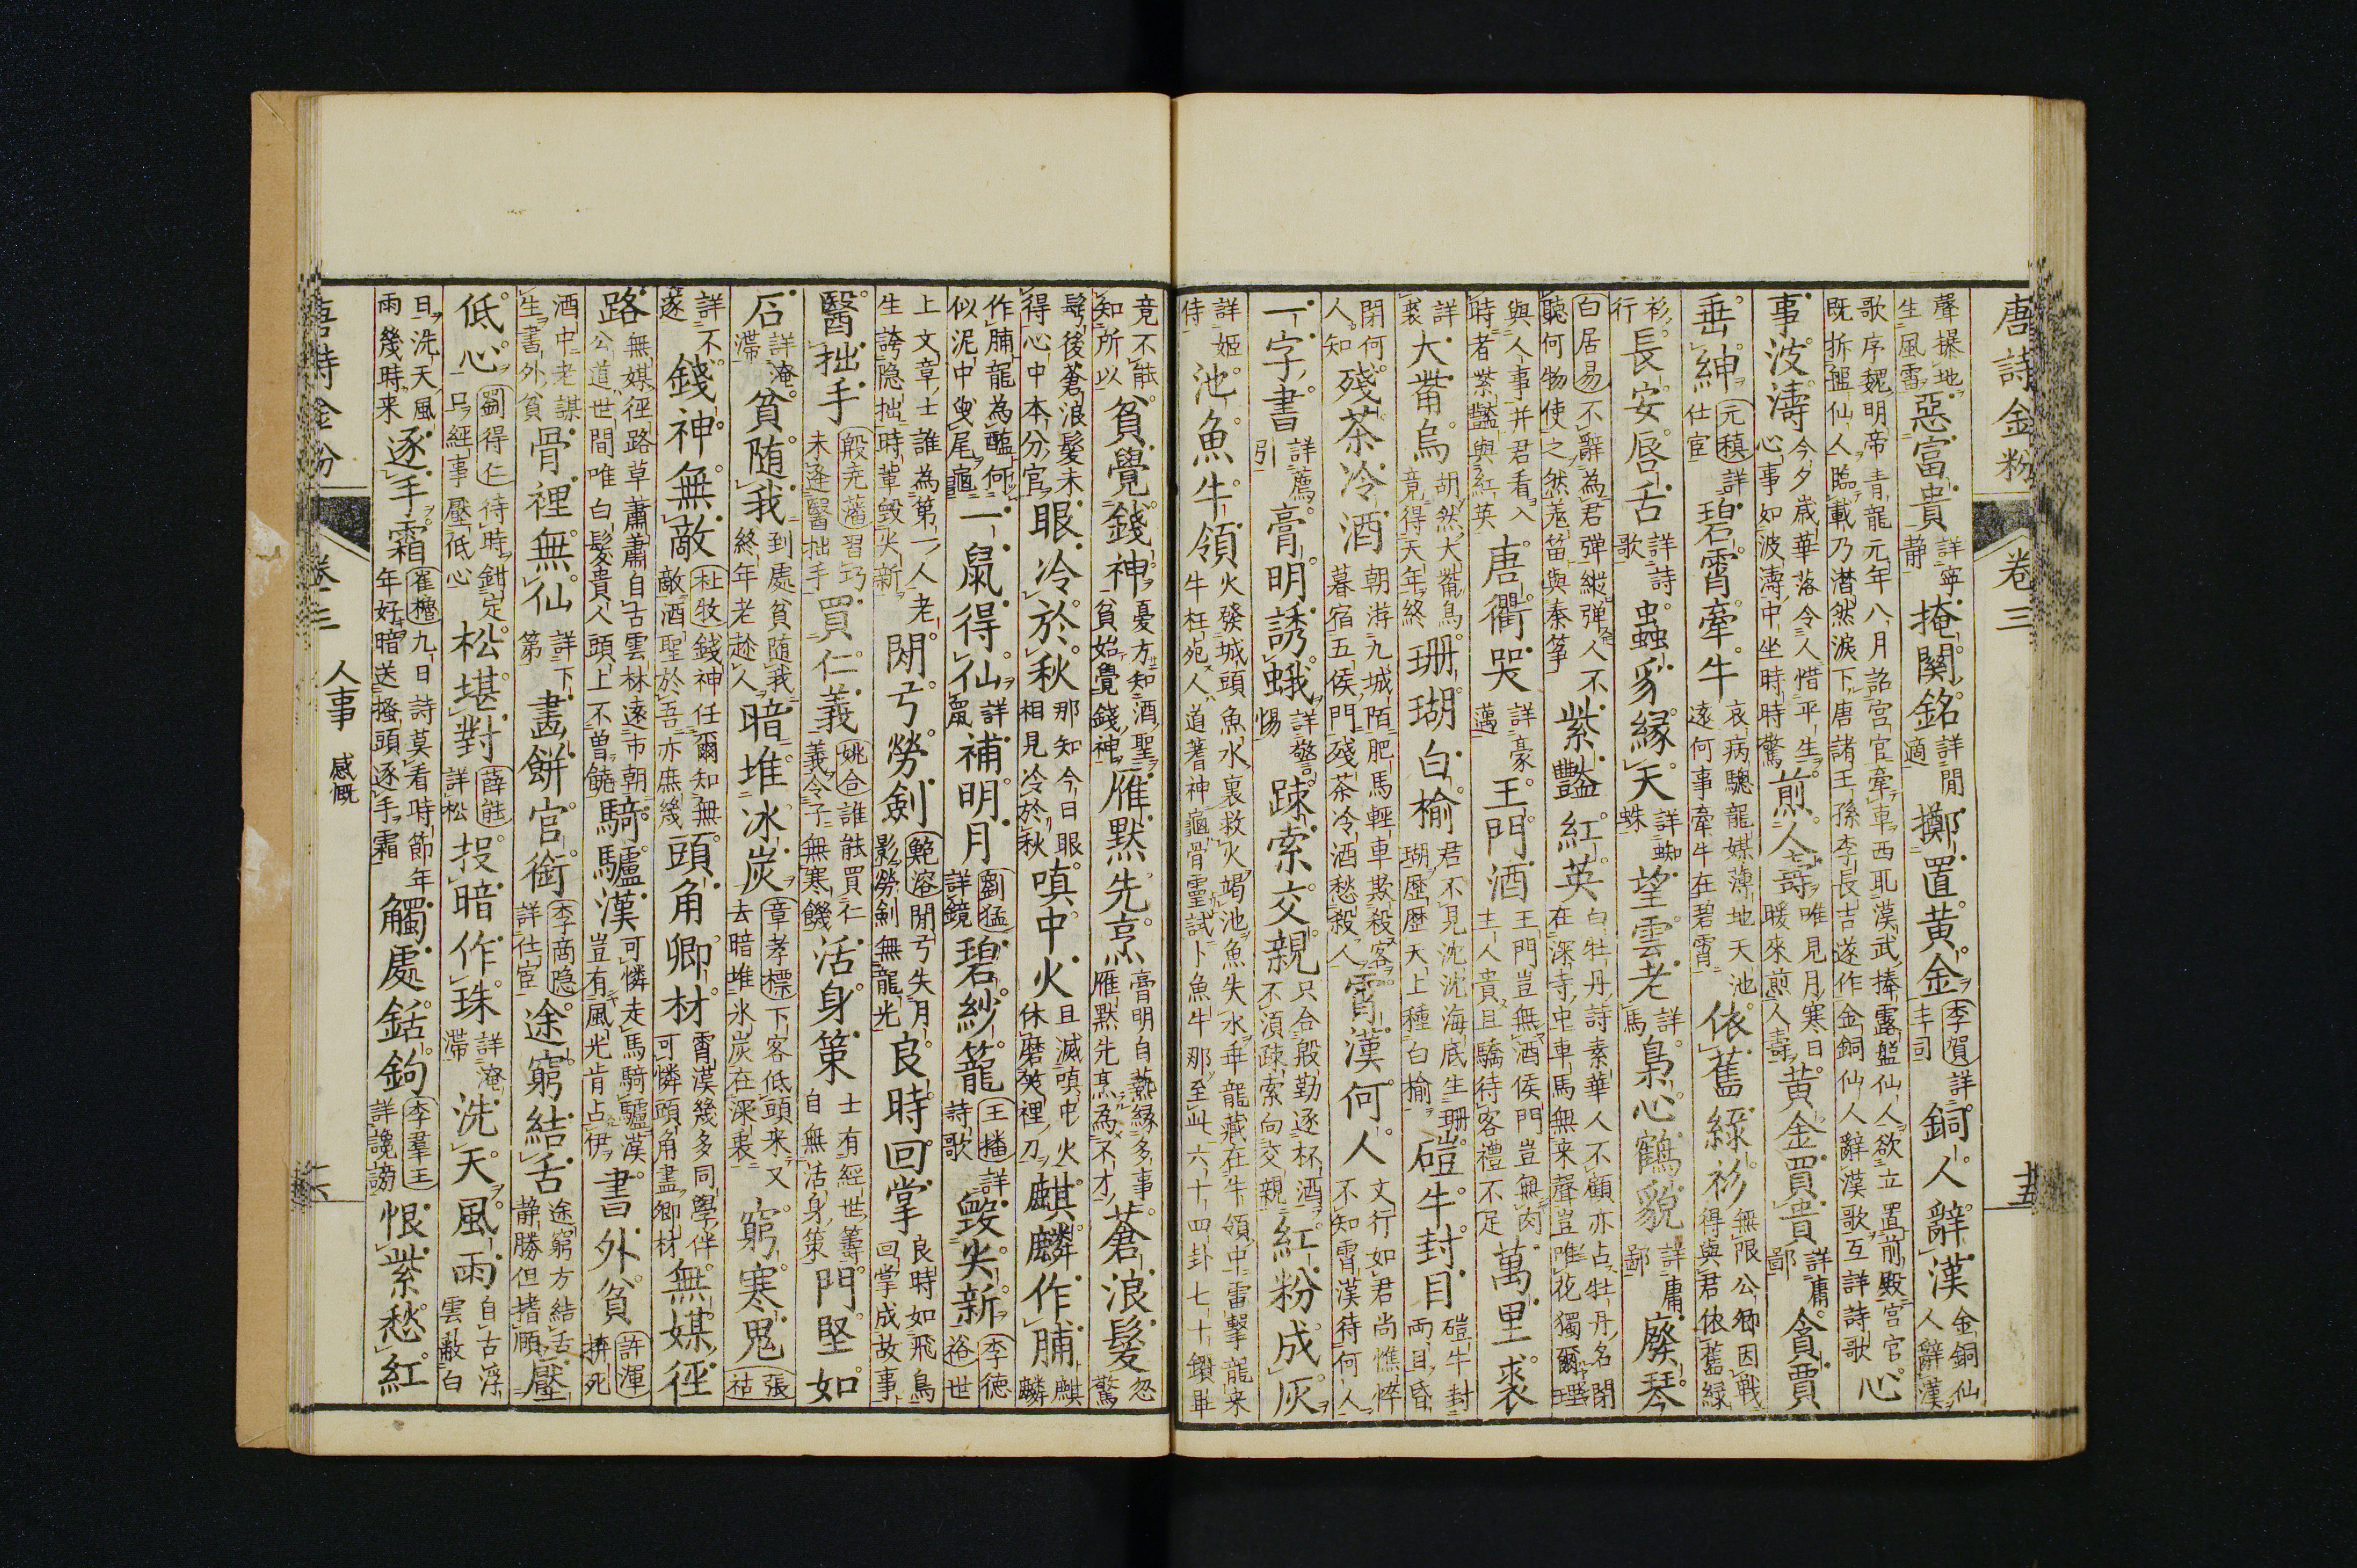 唐詩金粉 卷三 十五
聲撲地生風雷 惡富貴 詳寧静 掩關銘 詳閒適 擲置黃金 李賀 詳丰司 銅人辭漢 金銅仙人辭漢
歌序魏明帝青龍元年八月詔宮官牽車西取漢武捧露盤仙人欲立置前殿宮官既拆盤仙人臨載乃潸然淚下唐諸王孫李長吉遂作金銅仙人辭漢歌互詳詩歌 心
事波濤 今夕歲華落令人惜平生心事如波濤中坐時時驚 煎人壽 唯見月寒日暖來煎人壽 黃金買貴 詳庸鄙 貪賈
垂紳 元稹 詳仕宦 碧霄牽牛 哀病驄龍媒薄地天池遠何事牽牛在碧霄 依舊綠衫 無限公卿因戰得與君依舊綠
衫 行 長安唇舌 詳詩歌 蟲豸緣天 詳蜘蛛 望雲老 詳馬 梟心鶴貌 詳庸鄙 廢琴
白居易 不辭為君彈縱彈人不聽何物使之然羌笛與秦箏 紫豔紅英 白牡丹詩素華人不顧亦占牡丹名閉在深寺中車馬無来聲豈唯花獨爾理
與人事并君看入時者紫豔與紅英 唐衢哭 詳豪邁 王門酒 王門豈無酒侯門豈無肉主人貴且驕待客禮不足 萬里裘
詳裘 大觜烏 胡然大觜烏竟得天年終 珊瑚白榆 君不見沈沈海底生珊瑚歷歷天上種白榆 磑牛封目 磑牛封兩目昏
閉何人知 殘茶冷酒 朝游九城陌肥馬輕車欺殺客暮宿五侯門殘茶冷酒愁殺人 霄漢何人 文行如君尚憔悴不知霄漢待何人
一字書 詳薦引 膏明誘蛾 詳警惕 疎索交親 只合殷勤逐杯酒不須疎索向交親 紅粉成灰
詳姬侍 池魚牛領 火發城頭魚水裏救火竭池魚失水乖龍藏在牛領中雷擊龍来牛枉死人道著神龜骨靈試卜魚牛那至此六十四卦七十鑽畢
竟不能知所以 貧覺錢神 憂方知酒聖貧始覺錢神 雁黙先烹 膏明自爇緣多事雁黙先烹為不才 蒼浪髮 忽驚
髩後蒼浪髮未得心中本分官 眼冷於秋 那知今日眼相見冷於秋 嗔中火 且滅嗔中火休磨笑裡刀 麒麟作脯 麒麟
作脯龍為醢何似泥中曳尾龜 一鼠得仙 詳鼠 補明月 劉猛 詳鏡 碧紗籠 王播 詳詩歌 毀尖新 李德裕 世
上文章士誰為第一人老生誇隐拙時輩毀尖新 閑弓勞劍 鮑溶 閑弓失月影勞劍無龍光 良時回掌 良時如飛鳥回掌成故事
醫拙手 殷尭藩 習巧未逢醫拙手 買仁義 姚合 誰能買仁義令子無寒饑 活身策 士有經世籌自無活身策 門堅如
石 詳淹滯 貧随我 到處貧随我終年老趂人 暗堆冰炭 章孝標 下客低頭来又去暗堆氷炭在深裏 窮寒鬼 張祜
詳不遂 錢神無敵 杜牧 錢神任爾知無敵酒聖於吾亦庶幾 頭角卿材 霄漢幾多同學伴可憐頭角盡卿材 無媒徑
路 無媒徑路草蕭蕭自古雲林遠市朝公道世間唯白髮貴人頭上不曽饒 騎驢漢 可憐走馬騎驢漢豈有風光肯占伊 書外貧 許渾 擠死
酒中老謀生書外貧 骨裡無仙 詳下第 畫餅官銜 李商隐 詳仕宦 途窮結舌 途窮方結舌静勝但搘頤 壓
低心 劉得仁 待時鉗定口經事壓低心 松堪對 薛能 詳松 投暗作珠 詳淹滯 洗天風雨 自古浮雲敝白
日洗天風雨幾時来 逐手霜 崔櫓 九日詩莫看時節年年好暗送搔頭逐手霜 觸處銛鉤 李羣玉 詳讒謗 恨紫愁紅
唐詩金粉 卷三 人事 感慨 十六